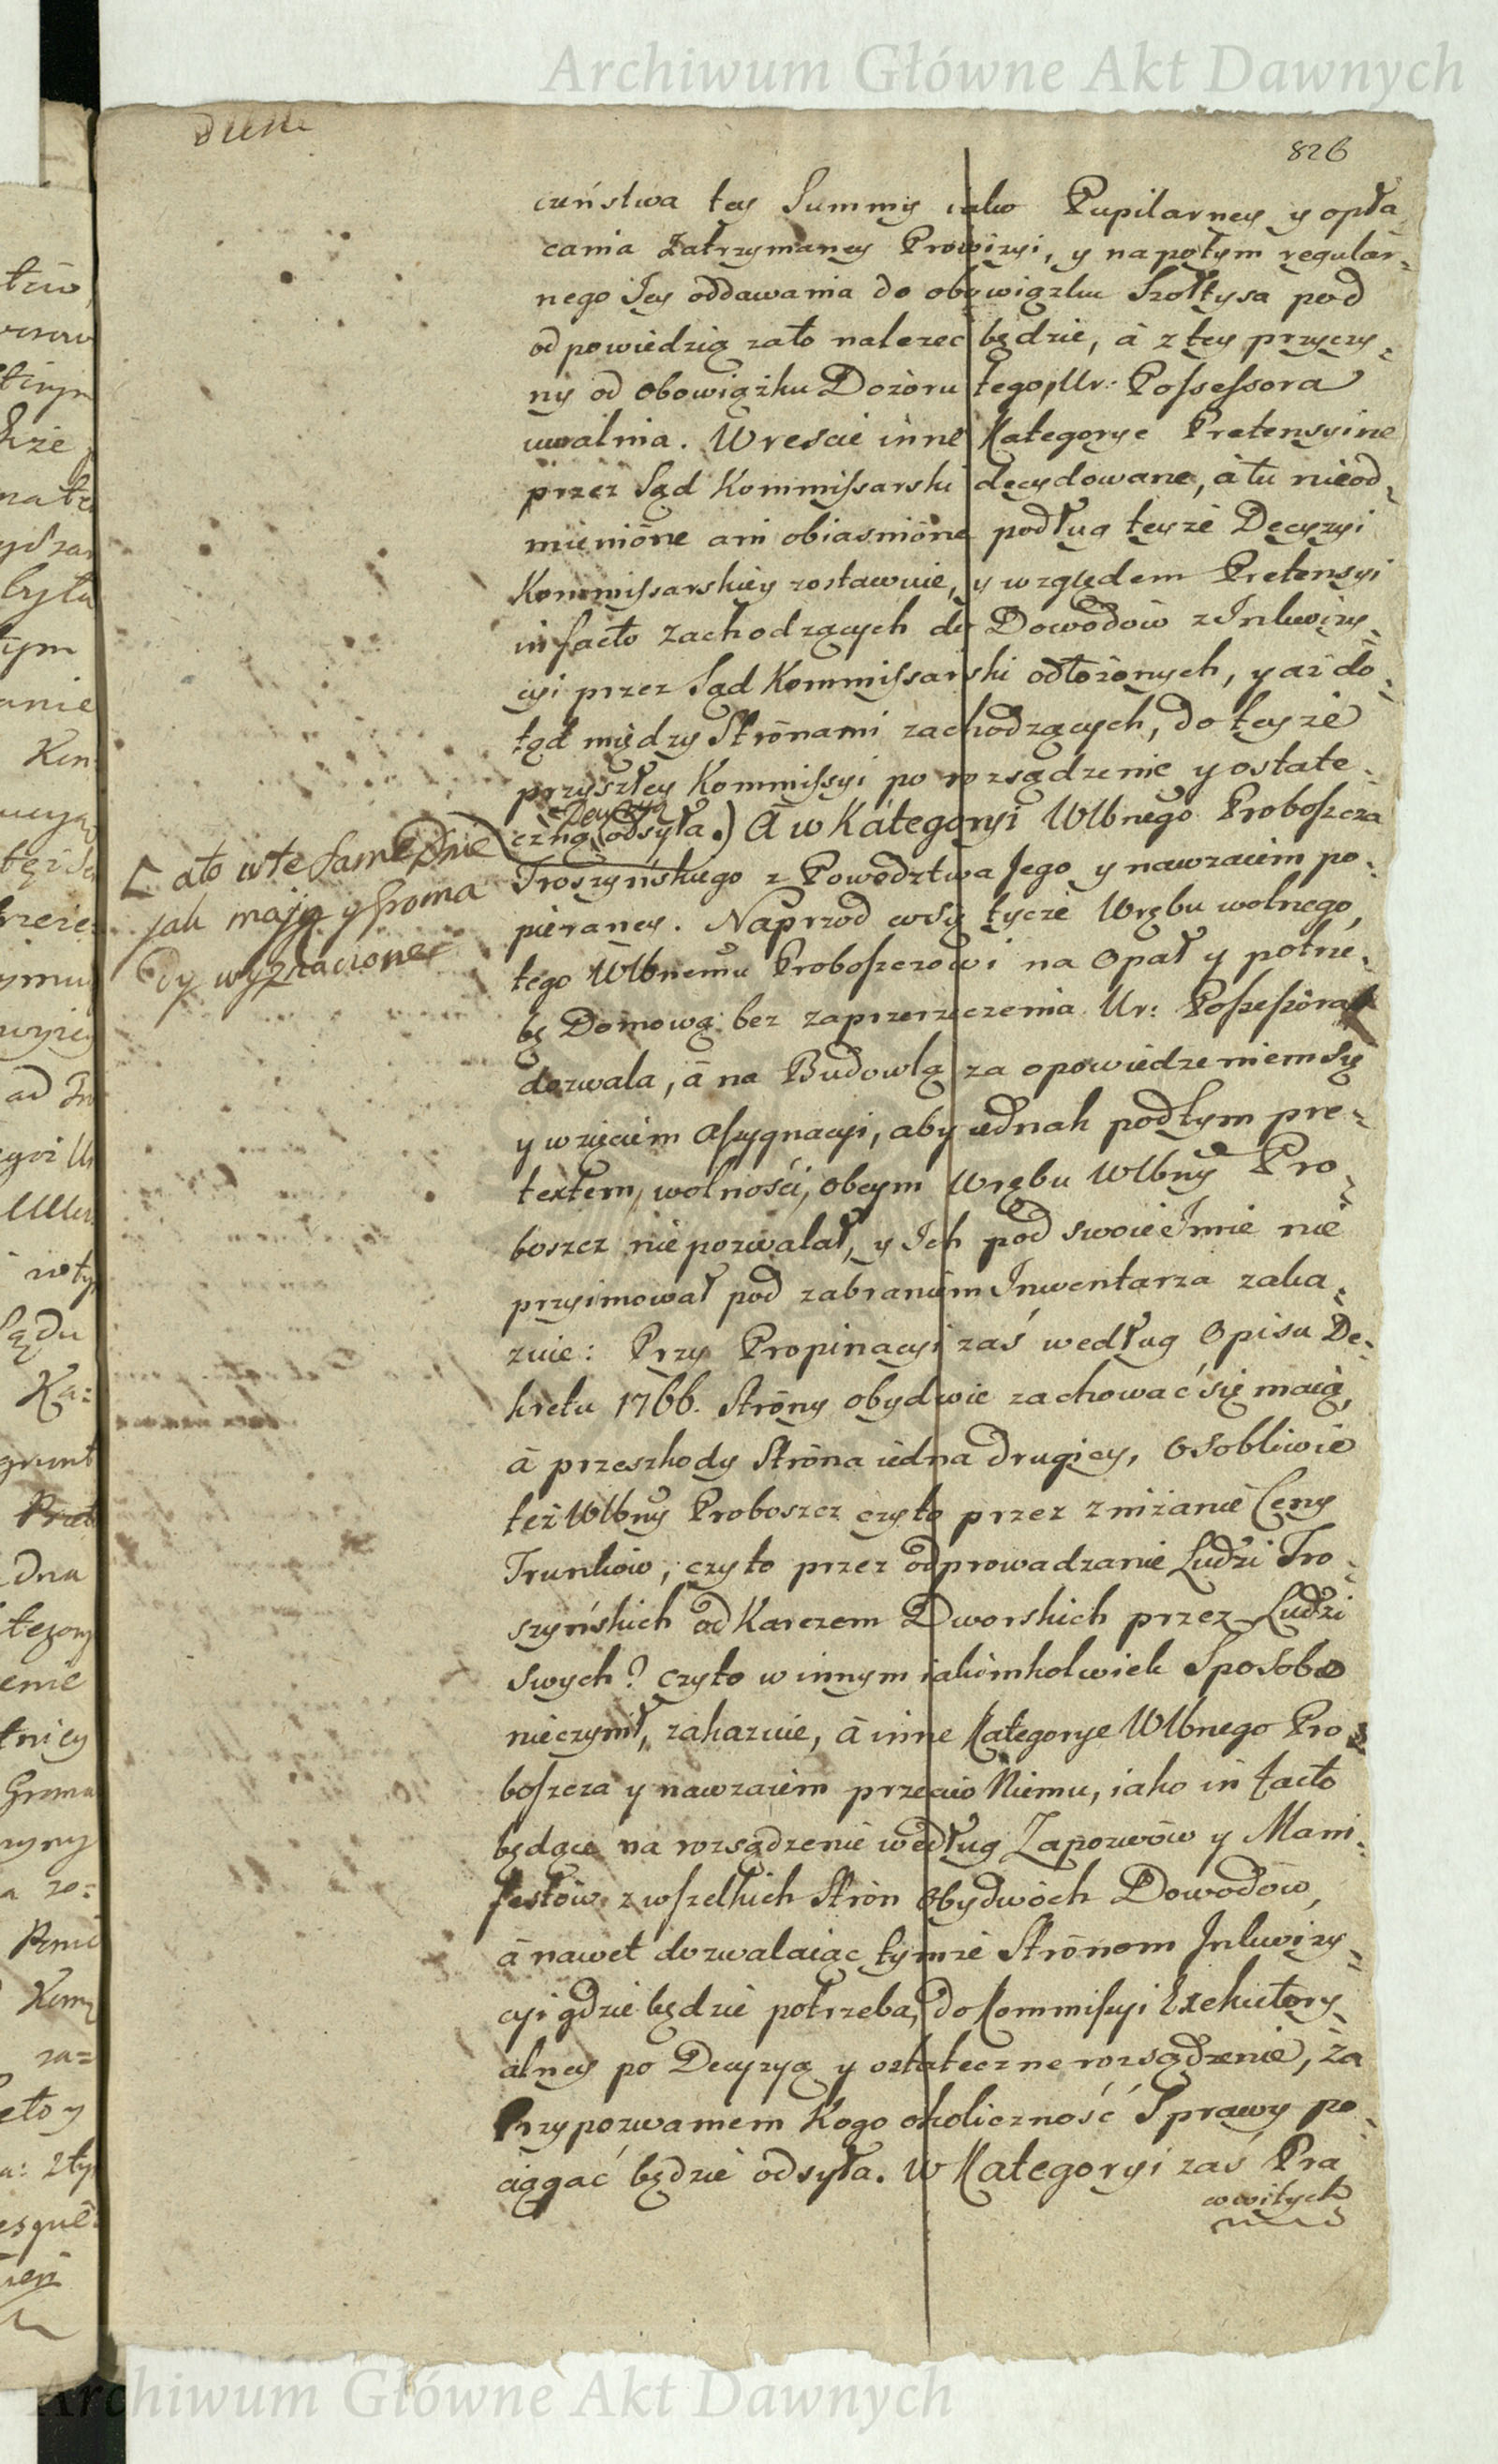 Archiwum Główne Akt Dawnych
826
cuństwa tey Summy iako Pupilarney y opła
cania Zatrzymaney Prowizyi, y napotym regular-
nego Jey oddawania do obowiązku Szołtysa pod
odpowiedzią zato nalezec będzie, à z tey przyczy-
ny od obowiązku Dozoru tego, Ur: Possessora
uwalnia. Wreście inne Kategorye Pretensyine
przez Sąd Kommissarski decydowane, à tu nieod-
mienione ani obiasnione podług teyże Decyzyi
Kommissarskiey zostawuie, y względem Pretensyi
in facto zachodzących do Dowodow z Inkwizy-
cyi przez Sąd Kommissarski odłożonych, y aż do-
tąd między Stronami zachodzących, do teyże
przyszłey Kommissyi po rozsądzenie y ostate-
Decyzyą
czną odsyła.) A w Kategoryi Wlbnego Proboszcza
[ ato wte same Dnie
jak mają y Groma
Troszyńskiego z Powodztwa Jego y nawzaiem po-
pieraney. Naprzod co się tycze Wrębu wolnego,
dy wyznaczone
tego Wlbnemu Proboszczowi na Opał y potrze-
bę Domową bez zaprzeczenia Ur: Possessora
dozwala, à na Budowlą za opowiedzeniem się
y wzięciem Assygnacyi, aby iednak podtym pre-
textem, wolności, obcym Wrębu Wlbny Pro-
boszcz nie pozwalał, y Ich pod swoie Imie nie
przyimował pod zabraniem Inwentarza zaka-
zuie: Przy Propinacyi zaś według Opisu De-
kretu 1766. Strony obydwie zachować się maią,
à przeszkody Strona iedna drugiey, osobliwie
też Wlbny Proboszcz czyto przez zniżanie Ceny
Trunkow, czyto przez odprowadzanie Ludzi Tro-
szyńskich od Karczem Dworskich przez Ludzi
swych? czyto w innym iakimkolwiek Sposobie
nieczynił, zakazuie, à inne Kategorye Wlbnego Pro-
boszcza y nawzaiem przeciw Niemu, iako in facto
będące na rozsądzenie według Zapozwów y Mani-
festów z wszelkich Stron Obydwóch Dowodów,
à nawet dozwalaiąc tymże Stronom Inkwizy-
cyi gdzie będzie potrzeba, do Kommissyi Exekutory-
alney po Decyzyą y ostateczne rozsądzenie, za
Przypozwaniem Kogo okoliczność Sprawy po-
ciągać będzie odsyła. W Kategoryi zaś Pra
cowitych
Archiwum Główne Akt Dawnych